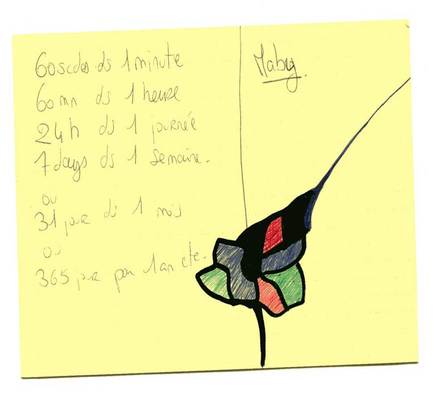 60 scdes ds 1 minute
60 mn ds 1 heure
24h ds 1 journée
7 days ds 1 semaine.
ou
31 jour ds 1 mois
ou
365 jour pour 1 an etc.
Maby